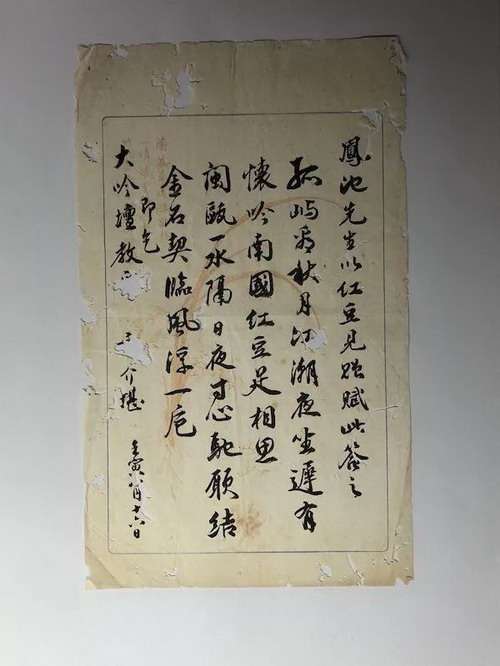 鳳池先生以紅豆見貽賦此答之
孤嶼看秋月江潮夜坐遲有
懷吟南國紅豆足相思
閩甌一水隔日夜寸心馳願結
金石契臨風浮一卮
即乞
大吟壇教
介堪
壬寅八月十六日